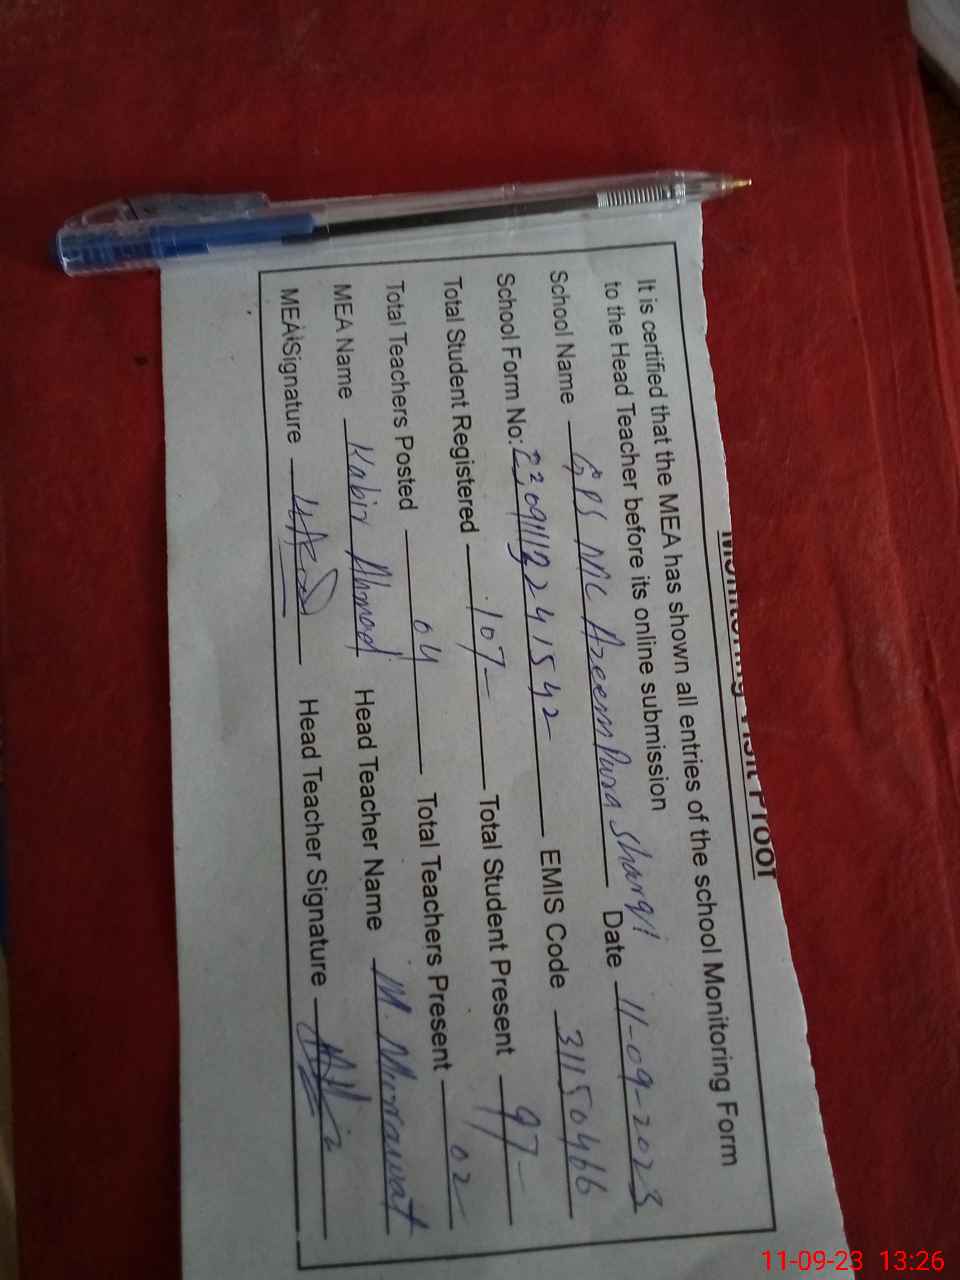 Monitoring Visit Proof
It is certified that the MEA has shown all entries of the school Monitoring Form
to the Head Teacher before its online submission
School Name GPS MC Azeem Pura Sharqi Date 11-09-2023
School Form No: EMIS Code 31150466
Total Student Registered 107 Total Student Present 97
Total Teachers Posted 04 Total Teachers Present 02
MEA Name Kabir Ahmad Head Teacher Name M. Murawat
MEA Signature Head Teacher Signature
11-09-23 13:26